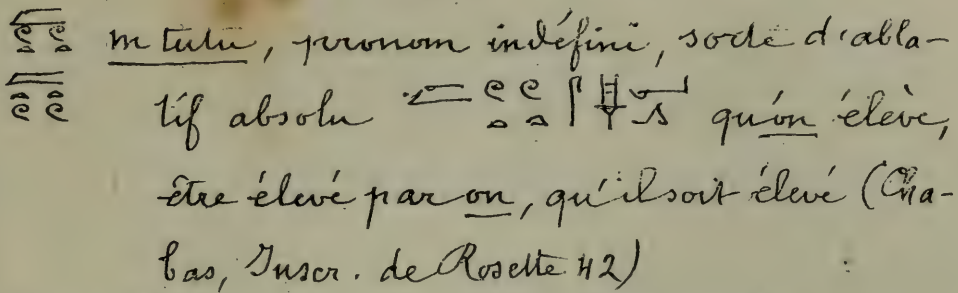 m tutu, pronom indéfini, sorte d'abla-
tif absolu qu'on élève,
être élevé par on, qu'il soit élevé (Cha-
bas, Inscr. de Rosette 42)